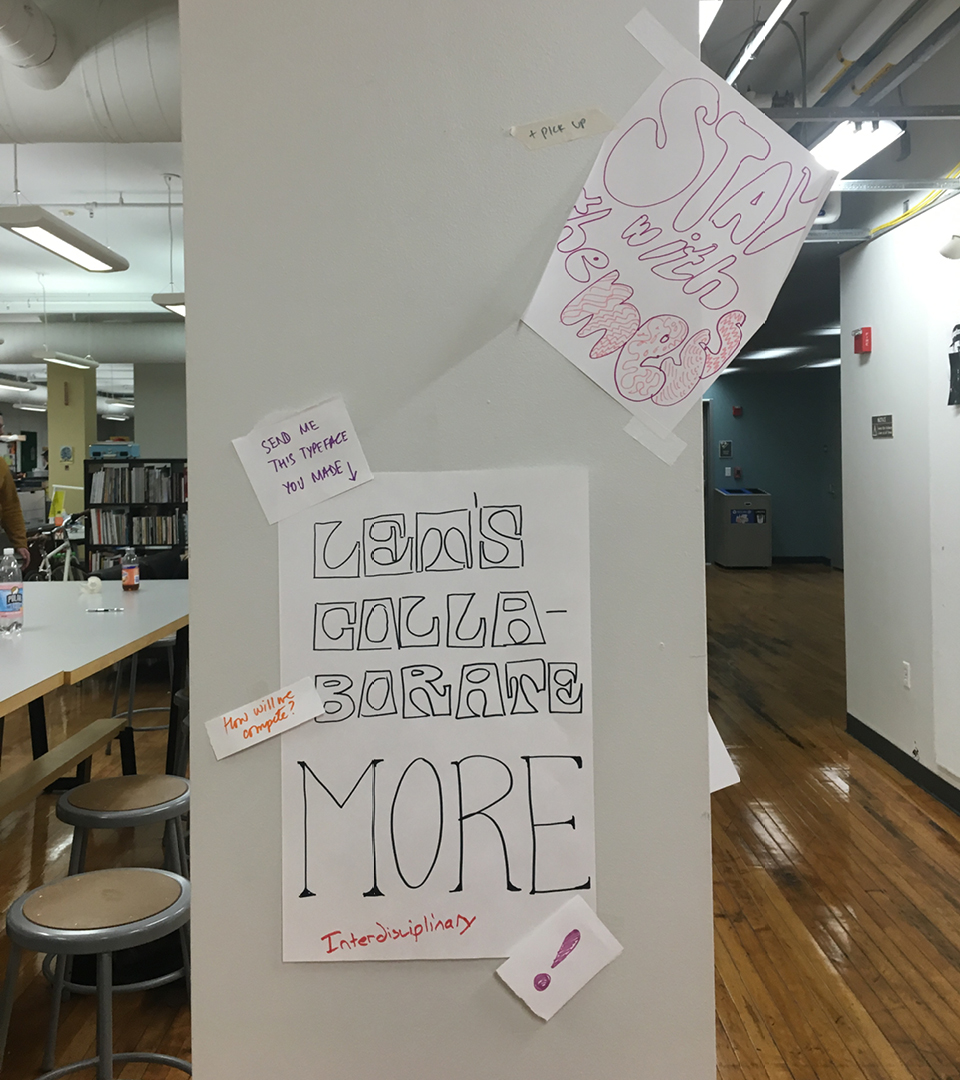 + PICK UP
STAY
with
the
MESS
SEND ME
THIS TYPEFACE
YOU MADE ↓
LET'S
COLLA-
BORATE
How will we
compete?
MORE
Interdisciplinary
!